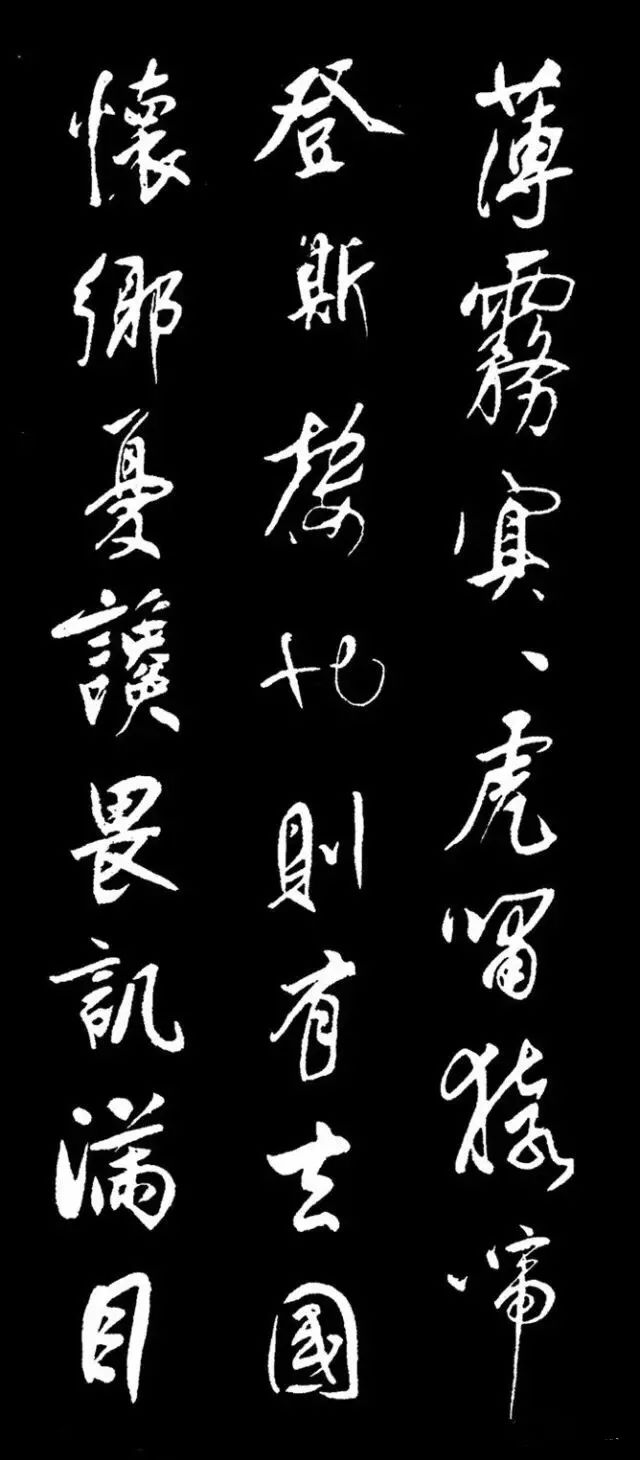 薄霧冥、虎嘯猿啼
登斯樓也則有去國
懷鄉憂讒畏譏滿目